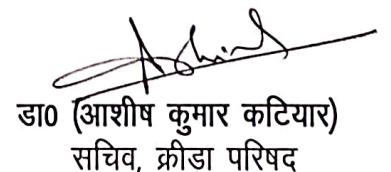 डा0 (आशीष कुमार कटियार)
सचिव, क्रीडा परिषद